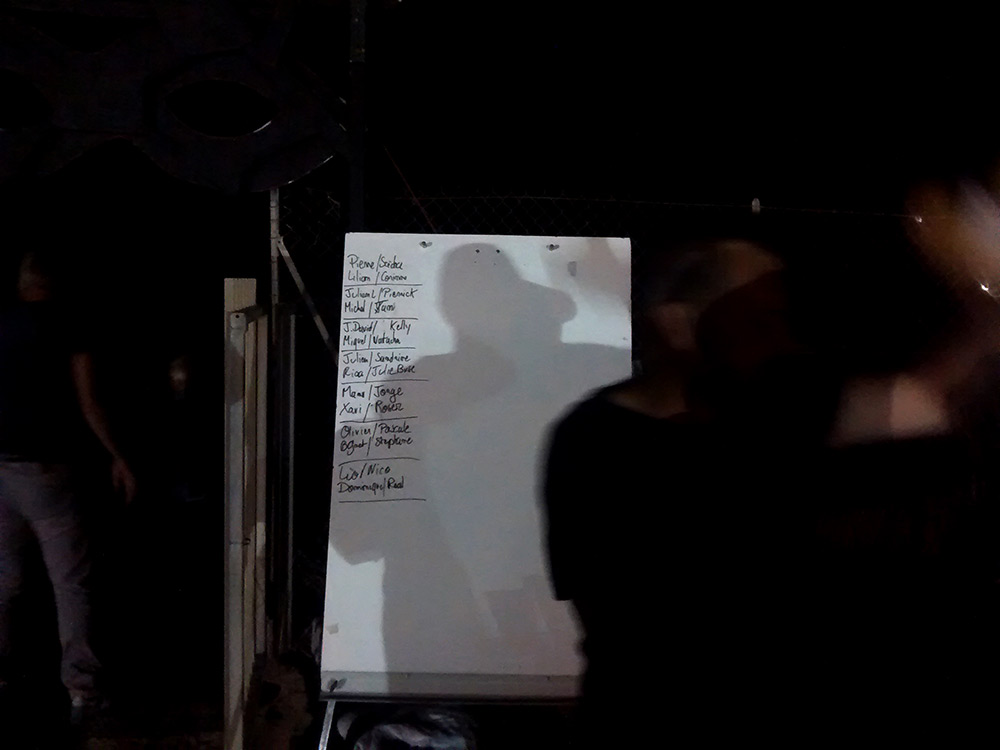 Pierre/Saidra
Lilian/Corinne
Julian L/Pierrick
Michel/Sami
J.David/Kelly
Miguel/Natacha
Julien/Sandrine
Rica/Julie
Manu/Jorge
Xavi/Roser
Olivier/Pascale
/Stephane
Lio/Nico
Dominique/